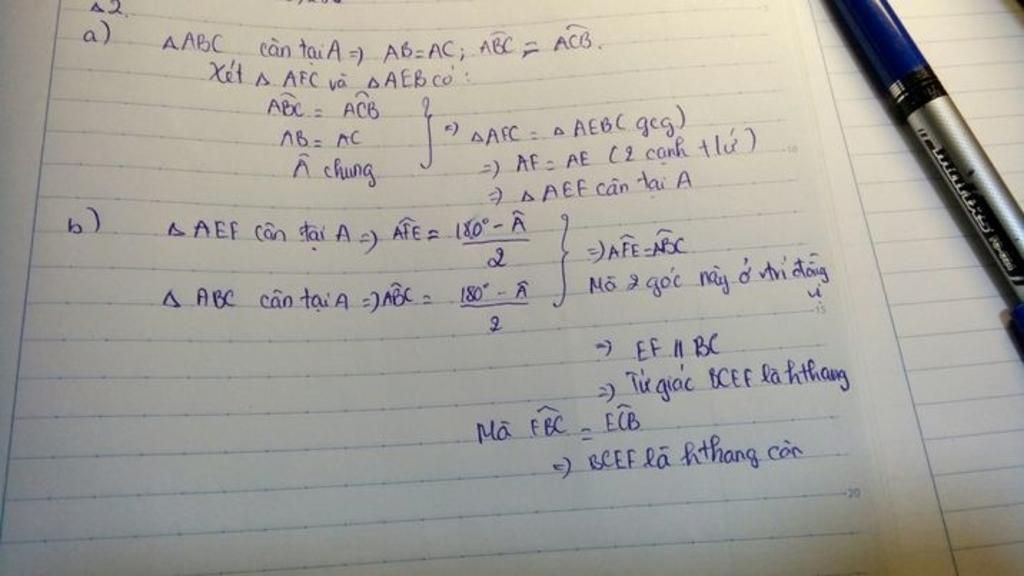 2.
a) ΔABC cân tại A => AB=AC; ABC = ACB.
Xét Δ AFC và ΔAEB có:
ABC = ACB
AB = AC
Â chung
=> ΔAFC = ΔAEB( gcg)
=> AF = AE (2 cạnh tứ)
=> ΔAEF cân tại A
b) ΔAEF cân tại A => AFE = 180° - Â / 2
Δ ABC cân tại A => ABC = 180° - Â / 2
=> AFE = ABC
Mà 2 góc này ở vtrí đồng
vị
=> EF // BC
=> Tứ giác BCEF là hthang
Mà FBC = ECB
=> BCEF là hthang cân
10
15
20